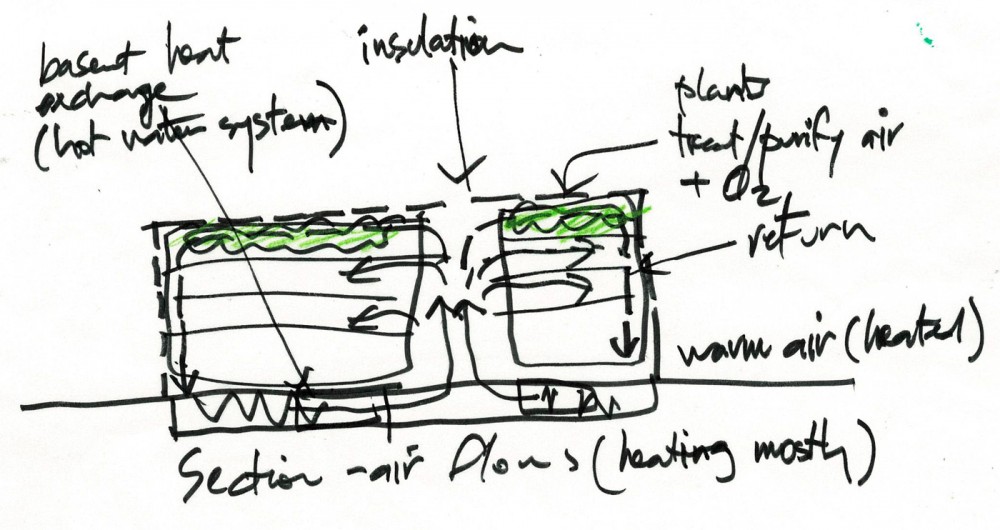 basemt heat
exchange
(hot water system)
insulation
plants
treat/purify air
+ O2
return
warm air (heated)
Section - air flows (heating mostly)